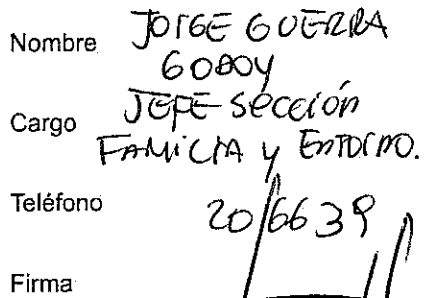 Nombre JORGE GUERRA
GODOY
Cargo JEFE Sección
FAMILIA y ENTORNO.
Teléfono 206639
Firma